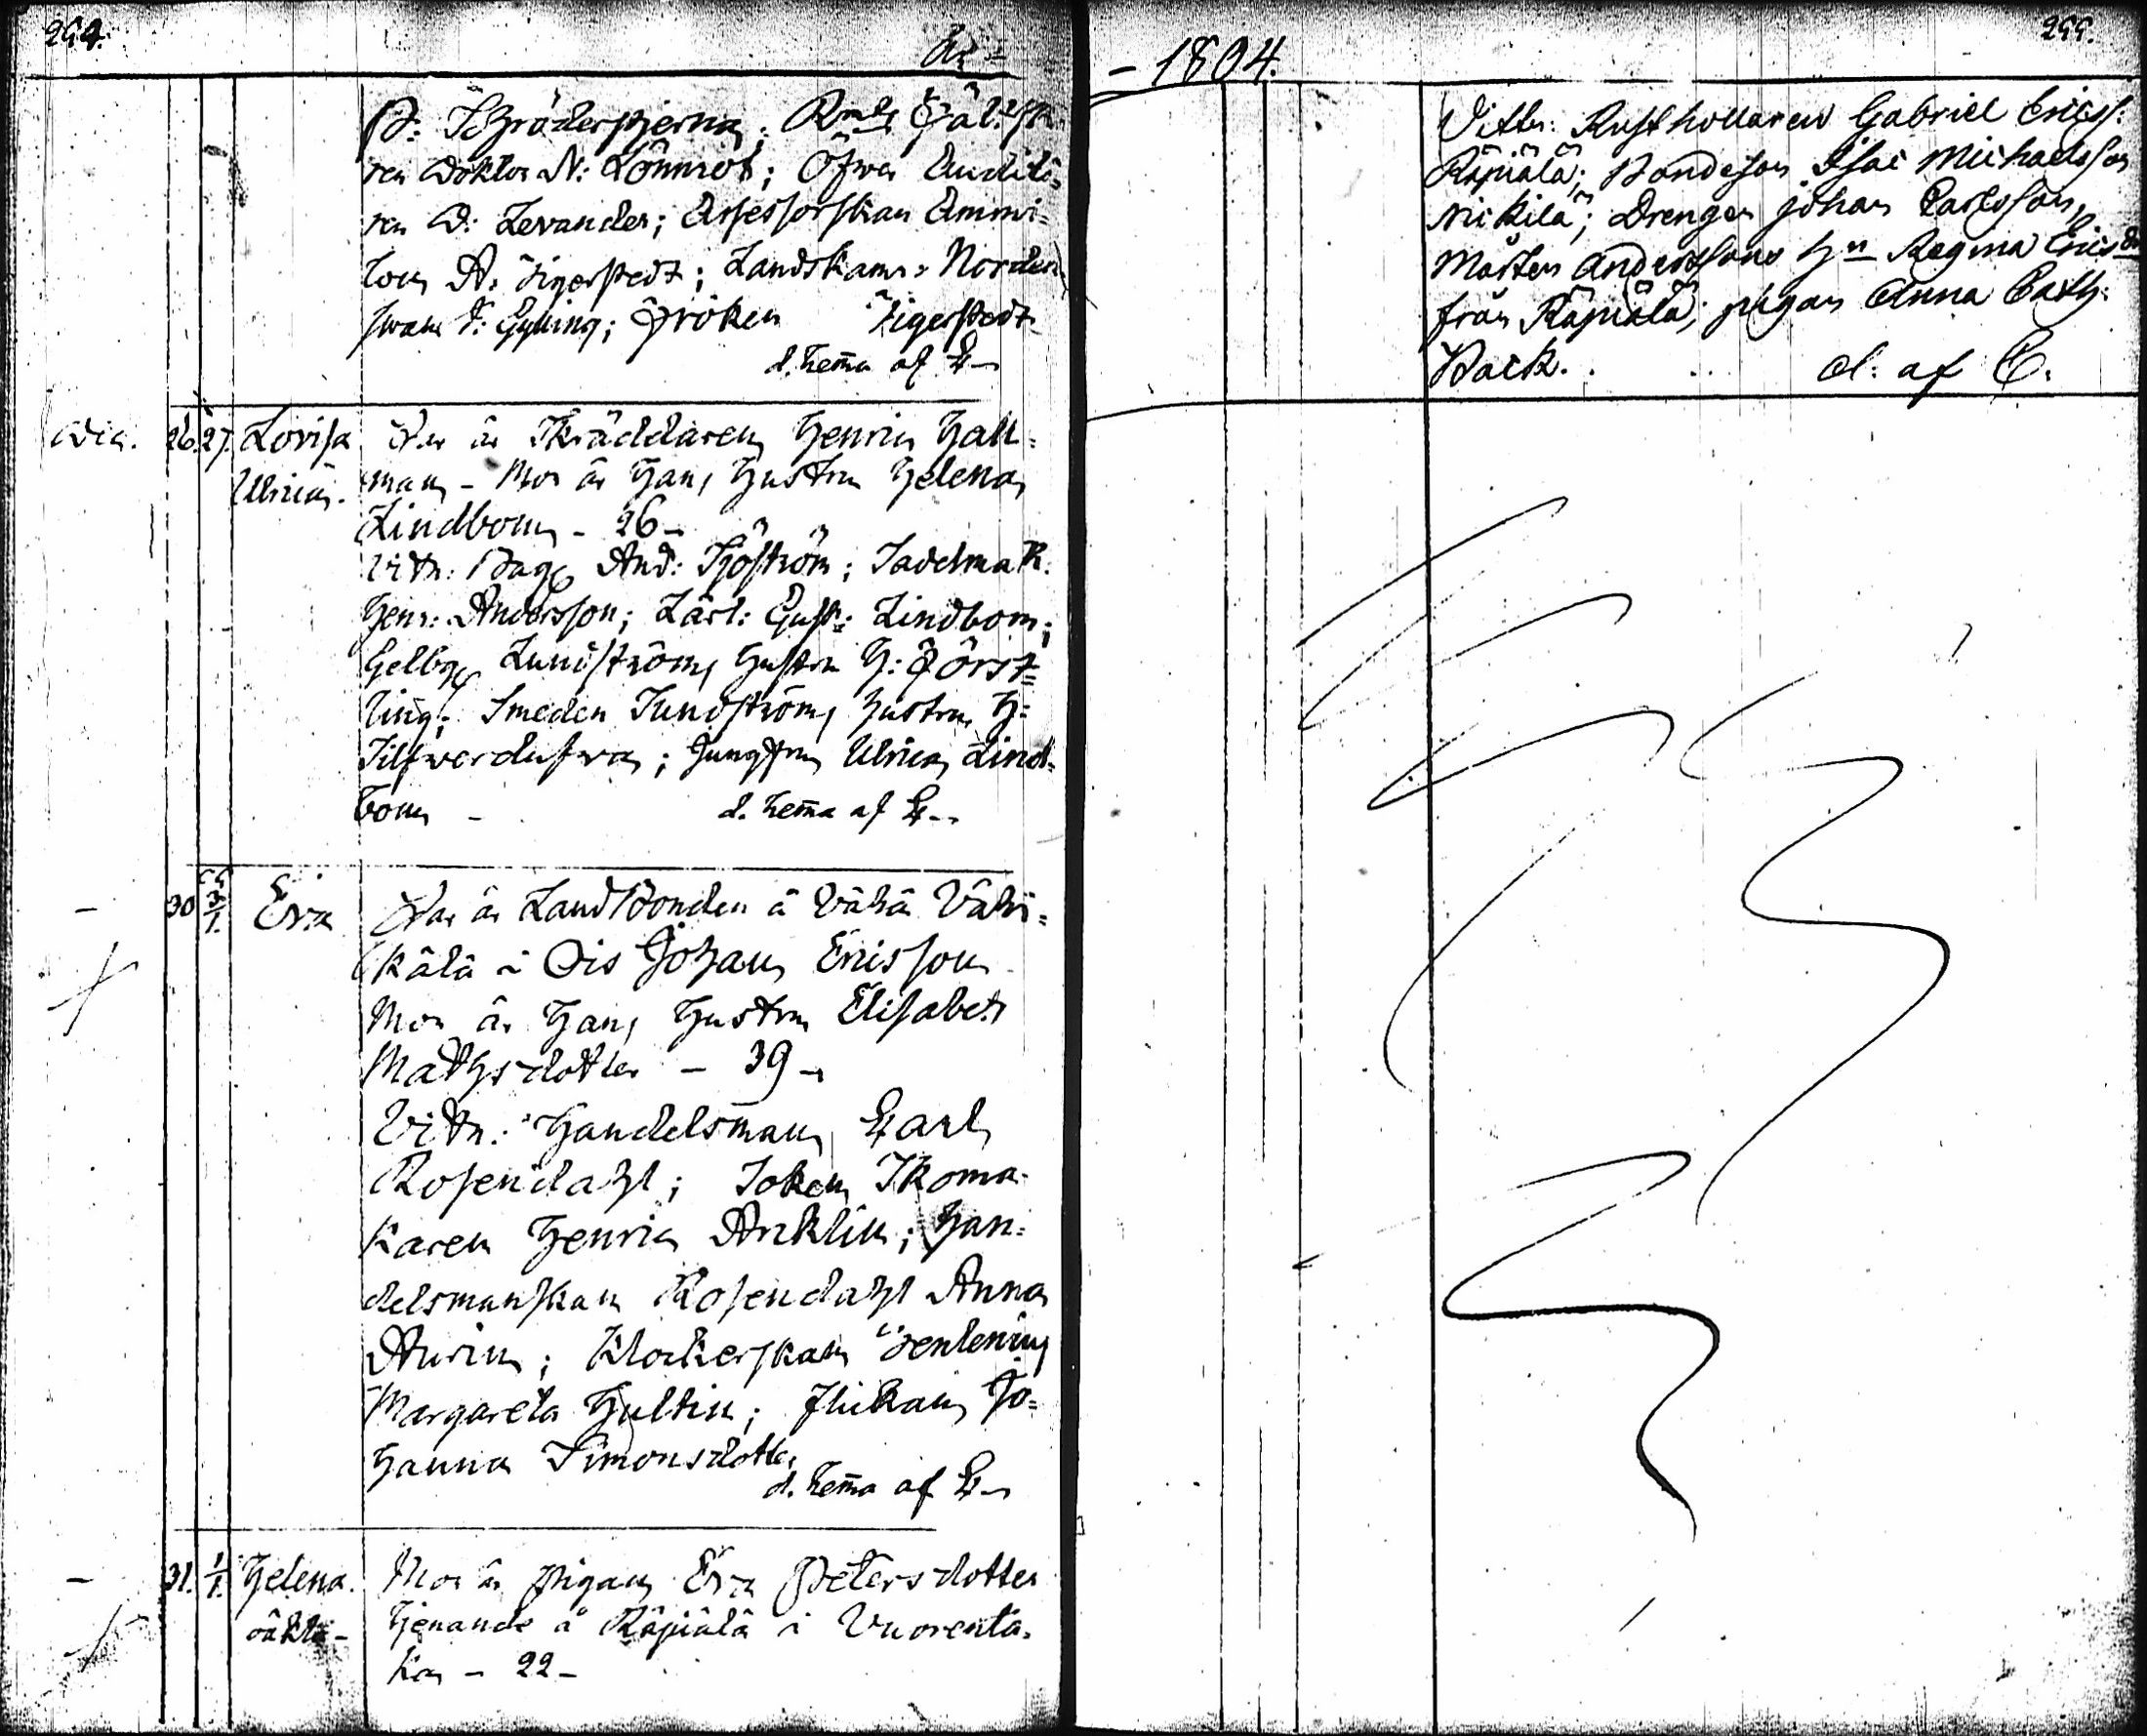 294.
År =
B: Schröderstjerna; R:m:s Fält:sk:
ren Doktor N: Lönnrot; Öfwer Auditö=
ren D: Levander; Assessorskan Ammi=
lon A: Tigerstedt; Landskamr: Norden
swan F: Gylling; Fröken Tigerstedt
d. hema af C-
Dec. 26. 27. Lovisa Far är Skräddaren Henric Hall=
Ulrica. man - Mor är Hans Hustru Helena
Lindbom - 26 -
Vitn: Bag: And: Sjöström; Sadelmak:
Henr: Andersson; Lärl: Gust: Lindbom;
Gelbg: Lundströms Hustru H: Först=
ling; Smeden Sundströms Hustru H:
Silfwerdufwa; Jungfru Ulrica Lind=
bom - d. hema af C--
- 30 3/1. Eva Far är Landbonden å Vähä Vähi=
kälä i Ois Johan Ericsson
Mor är Hans Hustru Elisabet
Mathsdotter - 39 -
Vitn: Handelsman Carl
Rosendahl; Sokem Skoma=
karen Henric Arcklin; Han=
delsmanskan Rosendahl Anna
Aurin; Klockerskan Zenlenius
Margareta Hultin; flickan Jo=
hanna Simonsdotter
d. hema af C-
- 31. 1/1. Helena. Mor är pigan Eva Petersdotter
oäkta - tjenande å Räpiälä i Vuorenta=
ka - 22 -
- 1804.
295.
Vittn: Rusthollaren Gabriel Ericss:
Räpiälä; Bondeson Isac Michaelsson
Nickilä; Drengen Johan Carlsson,
Mårten Anderssons H:u Regina Ericsd:r
från Räpiälä; pigan Anna Cath:
Back. . d: af C.